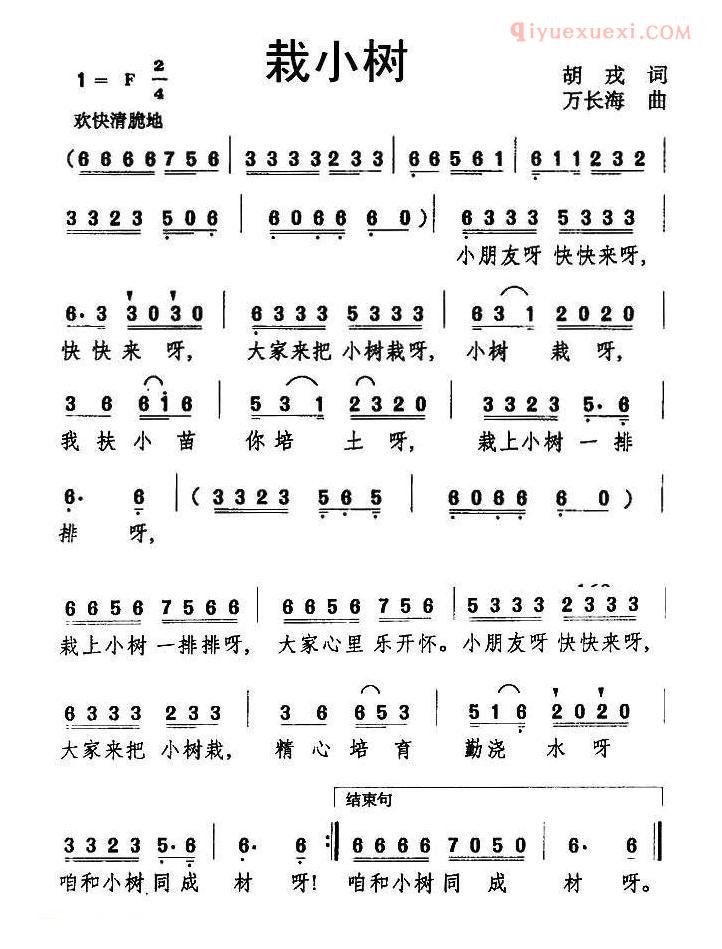 qiyuexuexi.COM
栽小树
1 = F 2/4
胡戎 词
万长海 曲
欢快清脆地
(6 6 6 6 7 5 6 | 3 3 3 3 2 3 3 | 6 6 5 6 1 | 6 1 1 2 3 2 |
3 3 2 3 5 0 6 | 6 0 6 6 6 0 ) | 6 3 3 3 5 3 3 3 |
小朋友呀 快快来呀,
6· 3 3 0 3 0 | 6 3 3 3 5 3 3 3 | 6 3 1 2 0 2 0 |
快快来 呀, 大家来把 小树栽呀, 小树 栽 呀,
3 6 6 1 6 | 5 3 1 2 3 2 0 | 3 3 2 3 5· 6 |
我扶小苗 你培 土呀, 栽上小树一排
6· 6 | ( 3 3 2 3 5 6 5 | 6 0 6 6 6 0 ) |
排 呀,
6 6 5 6 7 5 6 6 | 6 6 5 6 7 5 6 | 5 3 3 3 2 3 3 3 |
栽上小树 一排排呀, 大家心里 乐开怀。 小朋友呀 快快来呀,
6 3 3 3 2 3 3 | 3 6 6 5 3 | 5 1 6 2 0 2 0 |
大家来把 小树栽, 精心培育 勤浇 水呀
结束句
3 3 2 3 5· 6 | 6· 6 :| 6 6 6 6 7 0 5 0 | 6· 6 ‖
咱和小树同成 材 呀! 咱和小树同 成 材 呀。